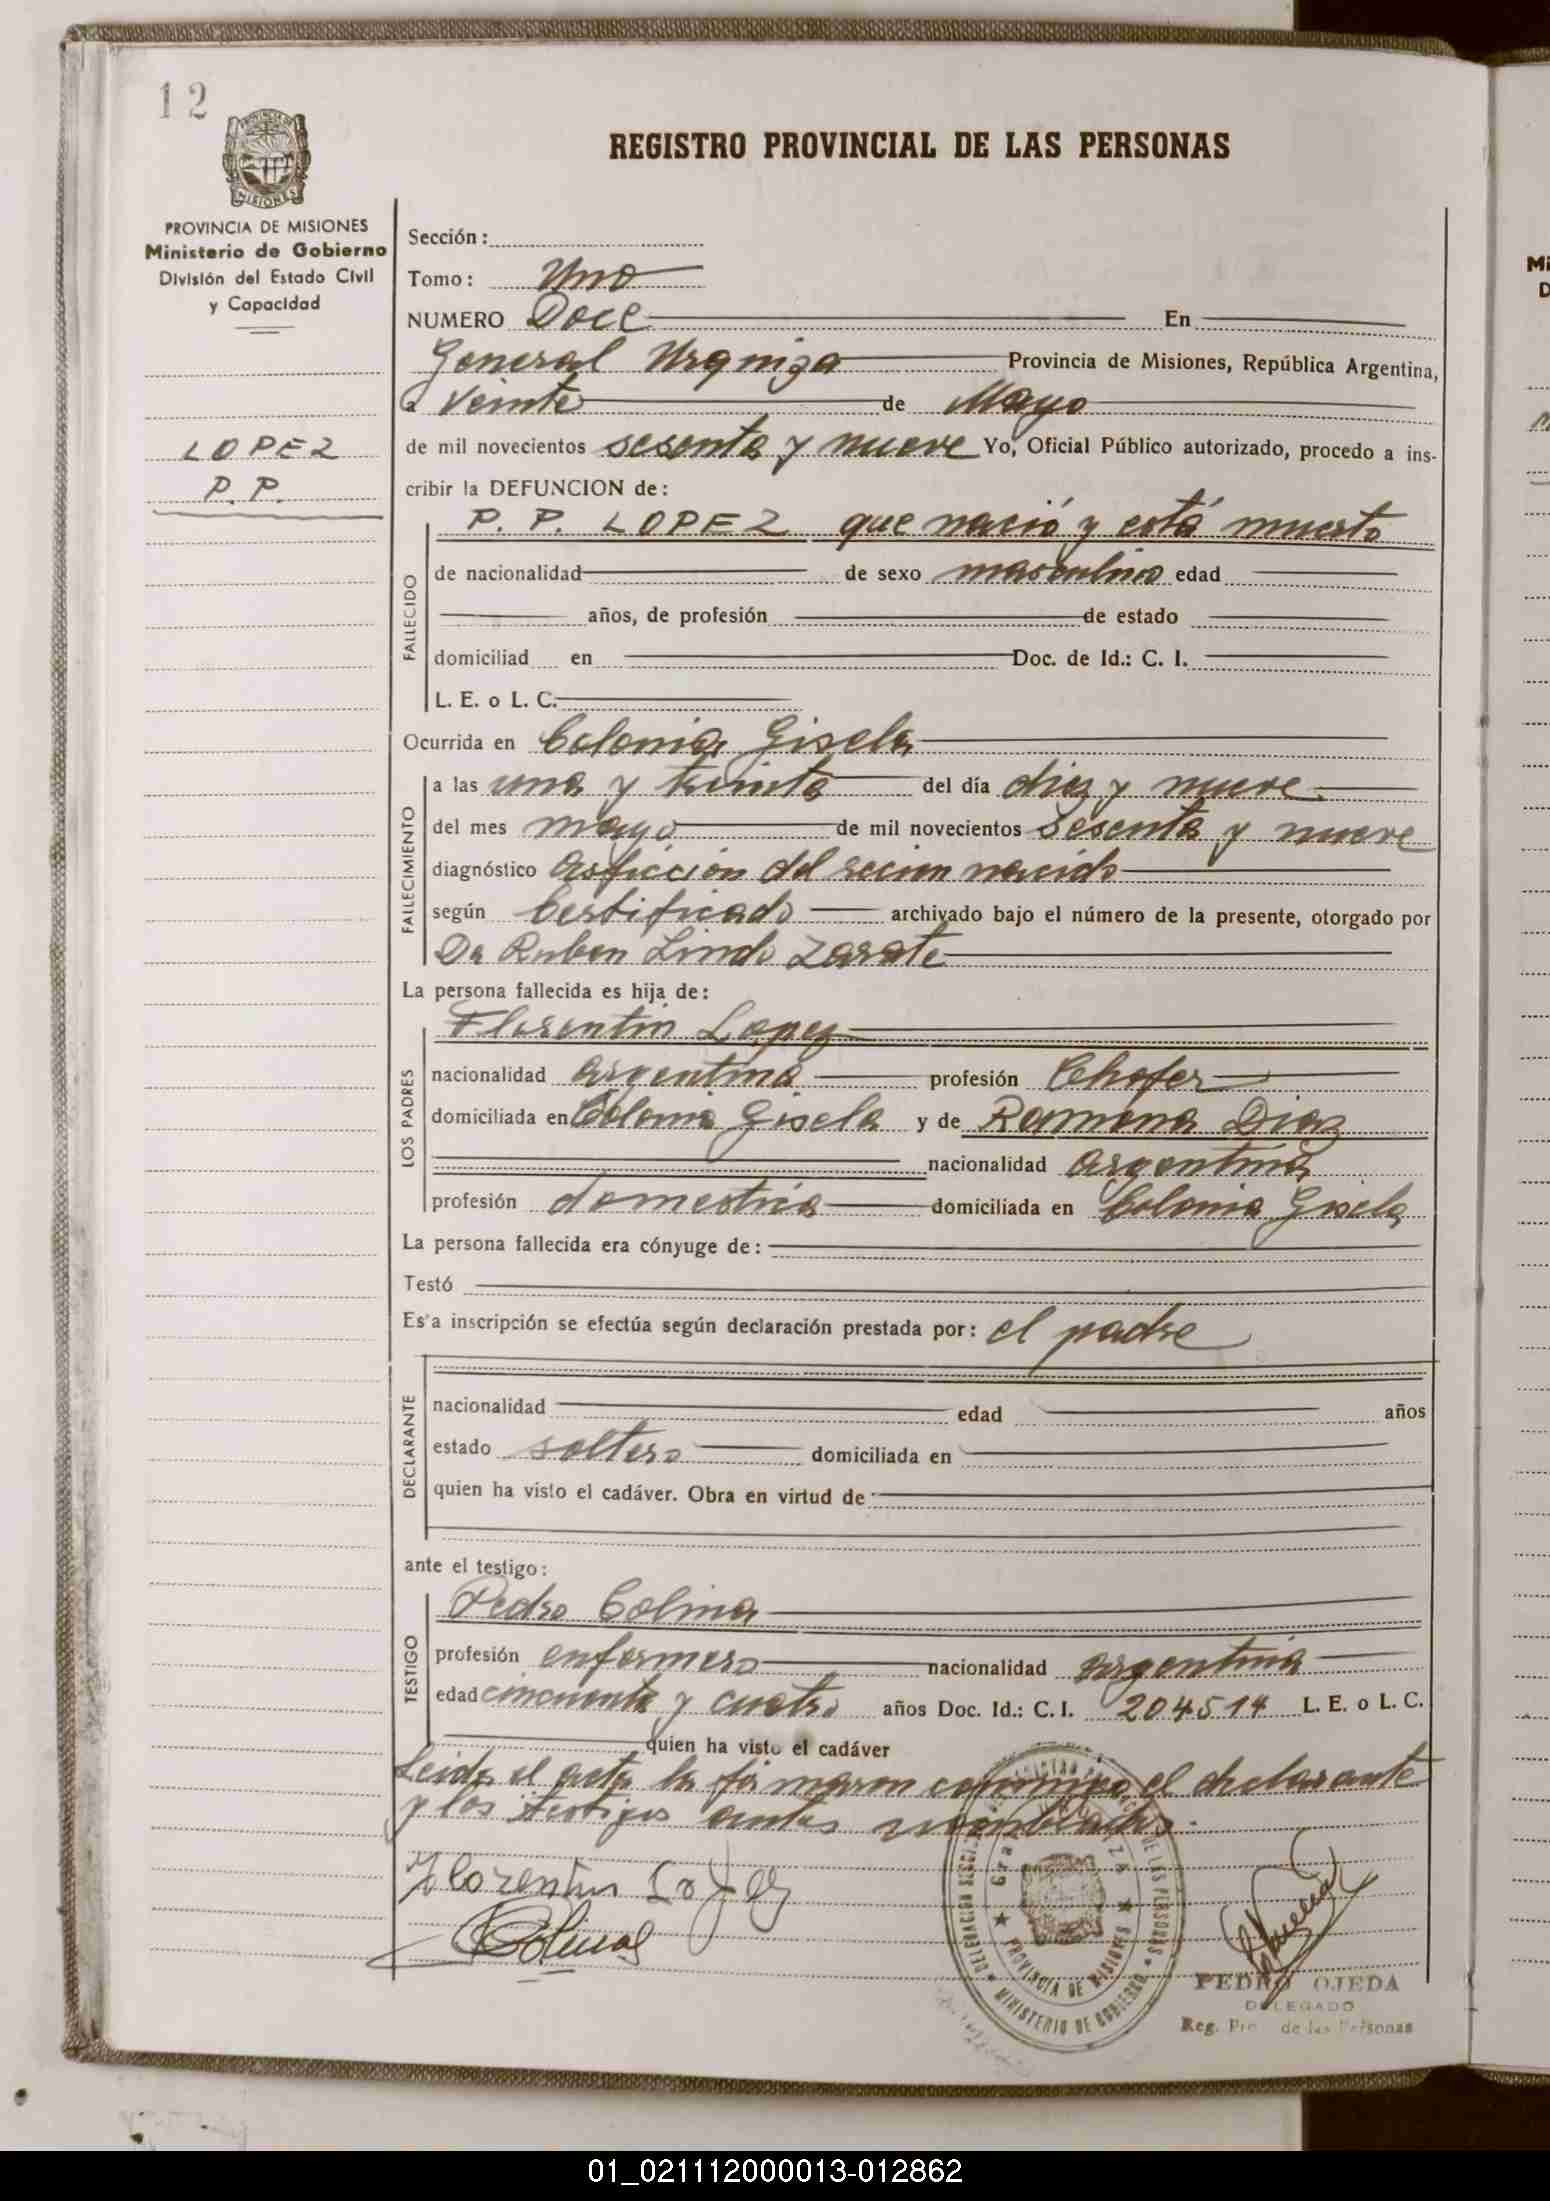 12
PROVINCIA DE MISIONES
Ministerio de Gobierno
División del Estado Civil
y Capacidad
LOPEZ
P. P.
REGISTRO PROVINCIAL DE LAS PERSONAS
Sección:
Tomo: Uno
NUMERO Doce En
General Urquiza Provincia de Misiones, República Argentina,
a Veinte de Mayo
de mil novecientos sesenta y nueve Yo, Oficial Público autorizado, procedo a ins-
cribir la DEFUNCION de:
P. P. LOPEZ que nació y está muerto
FALLECIDO
de nacionalidad de sexo masculino edad
años, de profesión de estado
domiciliad en Doc. de Id.: C. I.
L. E. o L. C.
Ocurrida en Colonia Gisela
FALLECIMIENTO
a las una y treinta del día diez y nueve
del mes mayo de mil novecientos sesenta y nueve
diagnóstico Asficcion del recien nacido
según Certificado archivado bajo el número de la presente, otorgado por
Dr Ruben Lindo Zarate
La persona fallecida es hija de:
LOS PADRES
Florentin Lopez
nacionalidad argentina profesión Chofer
domiciliada en Colonia Gisela y de Ramona Diaz
nacionalidad argentina
profesión domestica domiciliada en Colonia Gisela
La persona fallecida era cónyuge de:
Testó
Es'a inscripción se efectúa según declaración prestada por: el padre
DECLARANTE
nacionalidad edad años
estado soltero domiciliada en
quien ha visto el cadáver. Obra en virtud de
ante el testigo:
TESTIGO
Pedro Colina
profesión enfermero nacionalidad argentina
edad cincuenta y cuatro años Doc. Id.: C. I. 204514 L. E. o L. C.
quien ha visto el cadáver
Leida el acta la firmaron conmigo, el declarante
y los testigos antes nombrados.
Florentin Lopez
Colinas
PROVINCIA DE MISIONES
MINISTERIO DE GOBIERNO
DE LAS PERSONAS
PEDRO OJEDA
DELEGADO
Reg. de las Personas
01_021112000013-012862